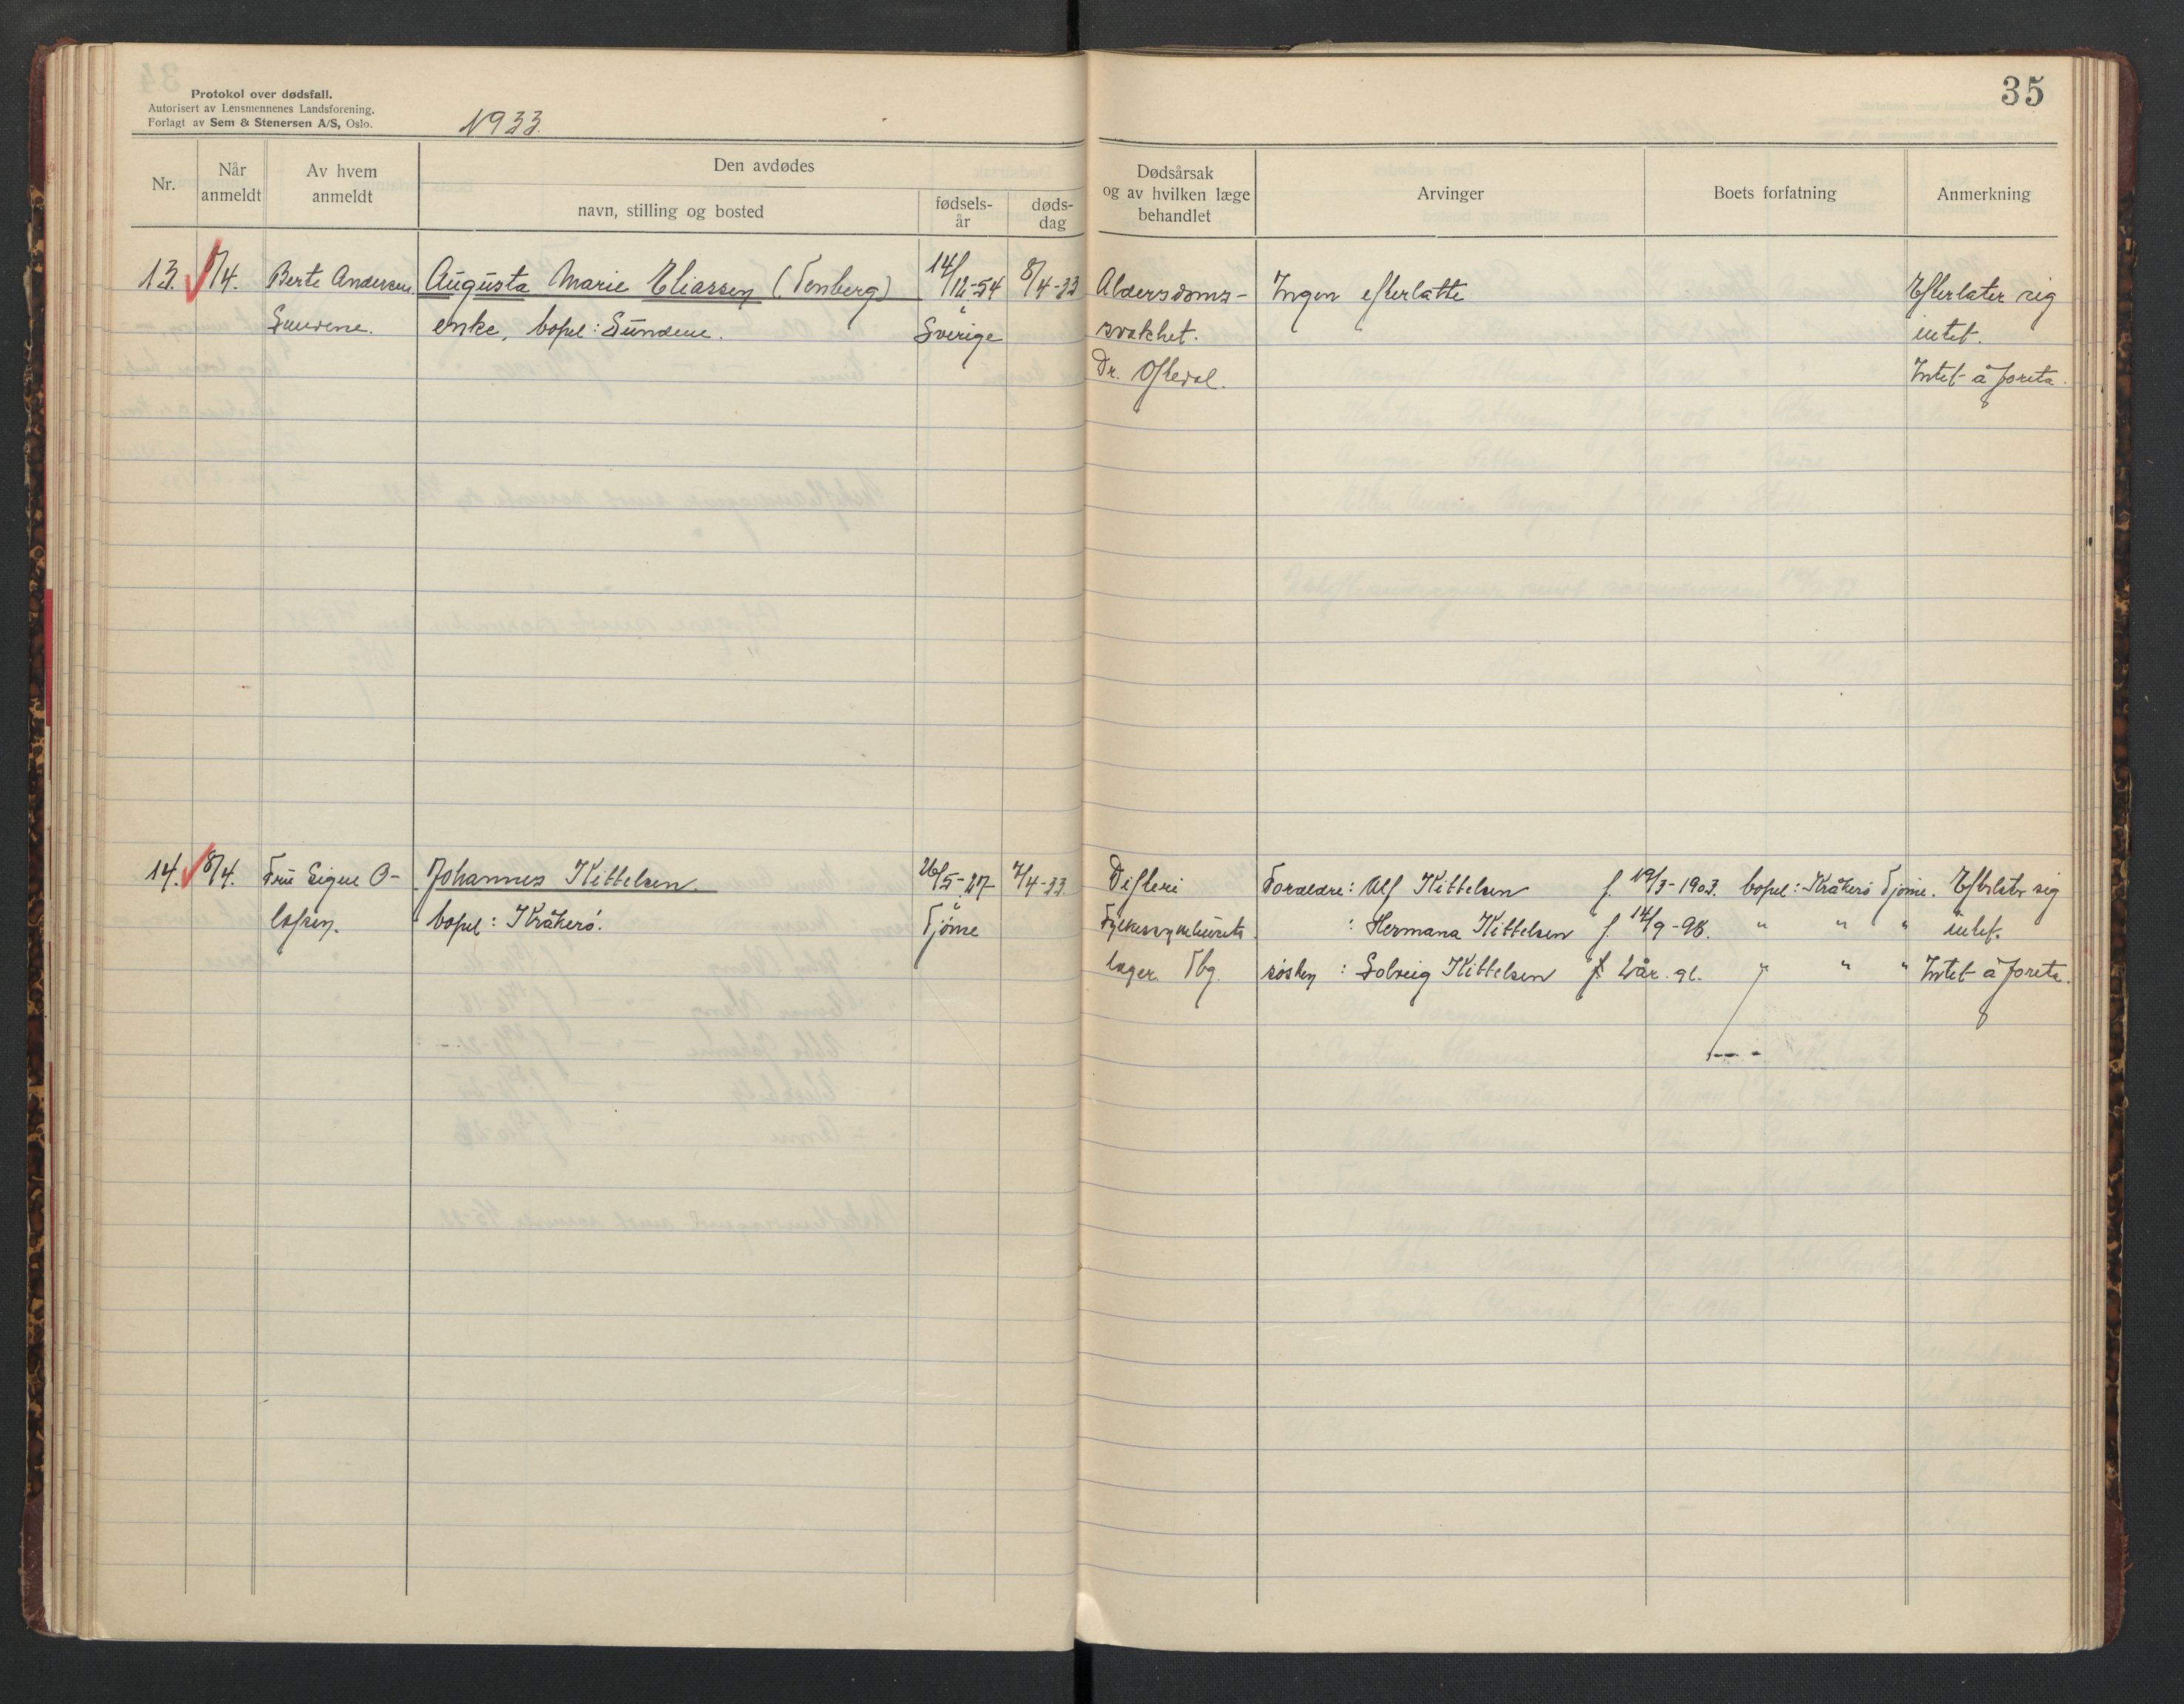 35
Protokol over dødsfall.
Autorisert av Lensmennenes Landsforening.
Forlagt av Sem & Stenersen A/S, Oslo.
1933.
Nr.
Når anmeldt
Av hvem anmeldt
Den avdødes
navn, stilling og bosted
fødsels-år
døds-dag
Dødsårsak og av hvilken læge behandlet
Arvinger
Boets forfatning
Anmerkning
13. 8/4. Berte Andersen Augusta Marie Eliassen (Tenberg) 14/12-54 8/4-33 Aldersdoms- Ingen efterlatte Efterlater sig
Sundene. enke, bopel: Sundene. Sverige svakhet. intet.
Dr. Oftedal. Intet å foreta.
14. 8/4. Fru Signe O- Johannes Kittelsen. 26/5-27 7/4-33. Difteri Foreldre: Alf Kittelsen f. 19/3-1903. bopel: Kråkerø Tjøme. Efterlater sig
lafsen. bopel: Kråkerø. Tjøme Fylkessykehusets : Hermana Kittelsen f. 14/9-98. " " " intet.
læger. Tbg. søsken : Solveig Kittelsen 2 år. gl. " " " Intet å foreta.